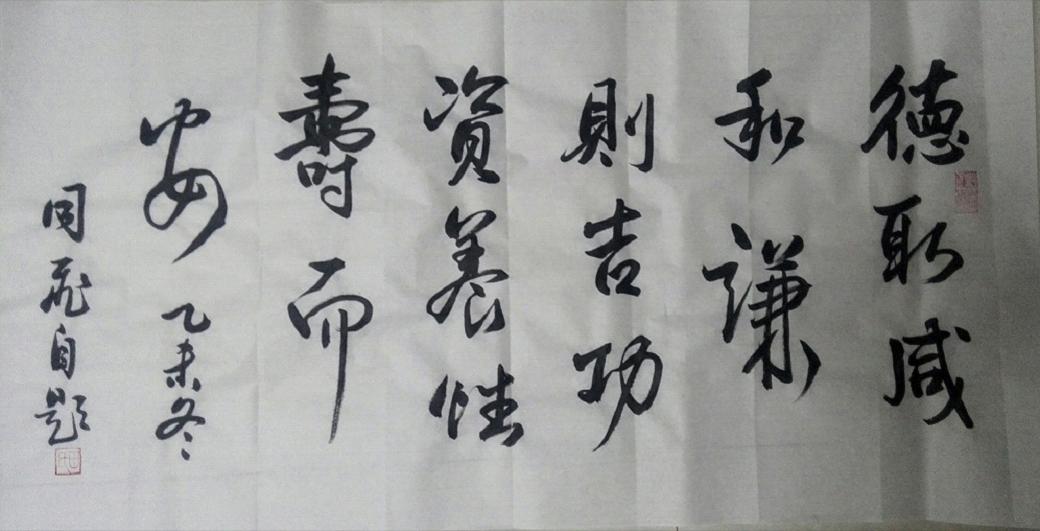 德取咸
和謙
則吉功
資養性
壽而
安
乙未冬
同飛自題